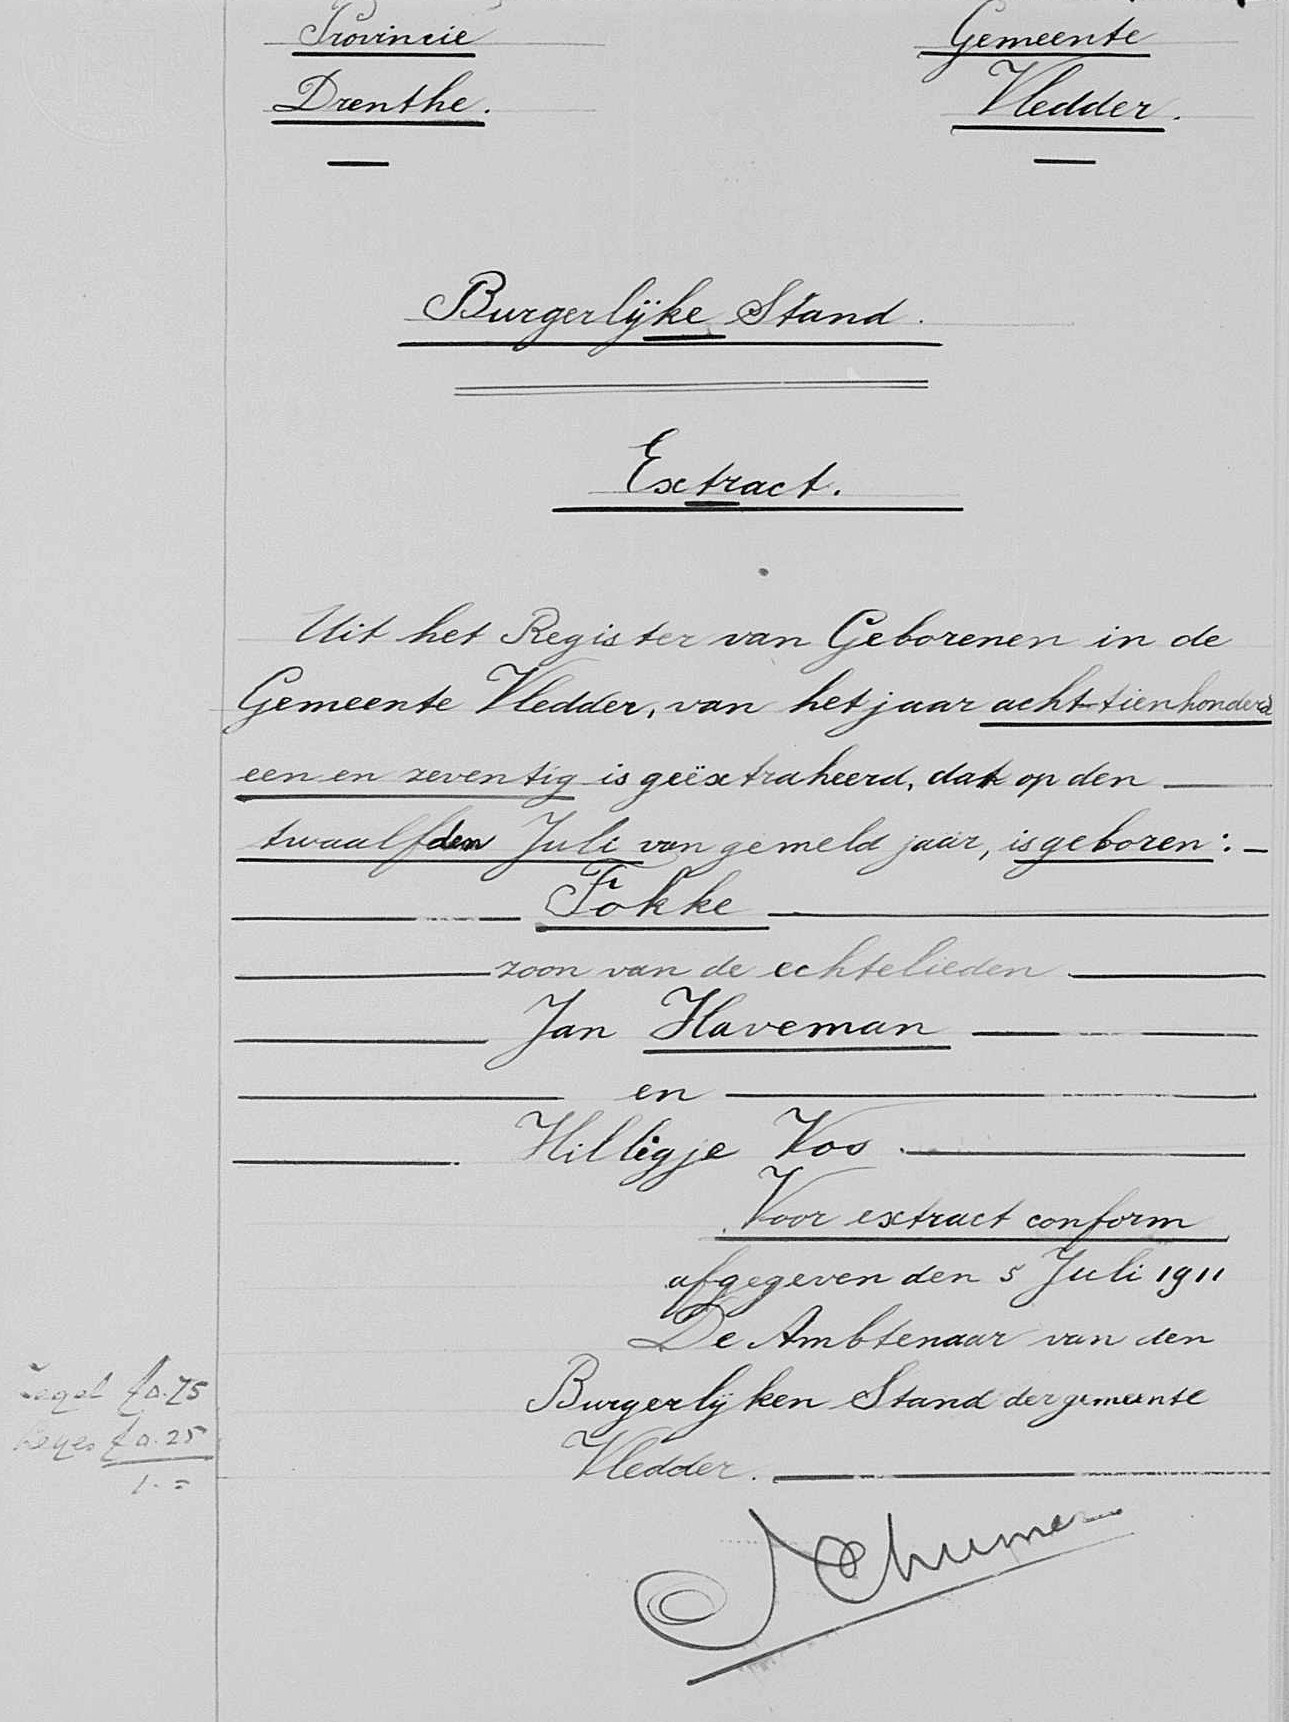 Provincie
Drenthe.
Gemeente
Vledder.
Burgerlijke Stand.
Extract.
Uit het Register van Geborenen in de
Gemeente Vledder, van het jaar acht-tienhonderd
een en zeventig is geëxtraheerd, dat op den
twaalfden Juli van gemeld jaar, is geboren:
Fokke
zoon van de echtelieden
Jan Haveman
en
Hilligje Vos.
Voor extract conform
afgegeven den 5 Juli 1911
De Ambtenaar van den
Burgerlijken Stand der gemeente
Vledder.
Zegel f 0.75
Leges f 0.25
1.=